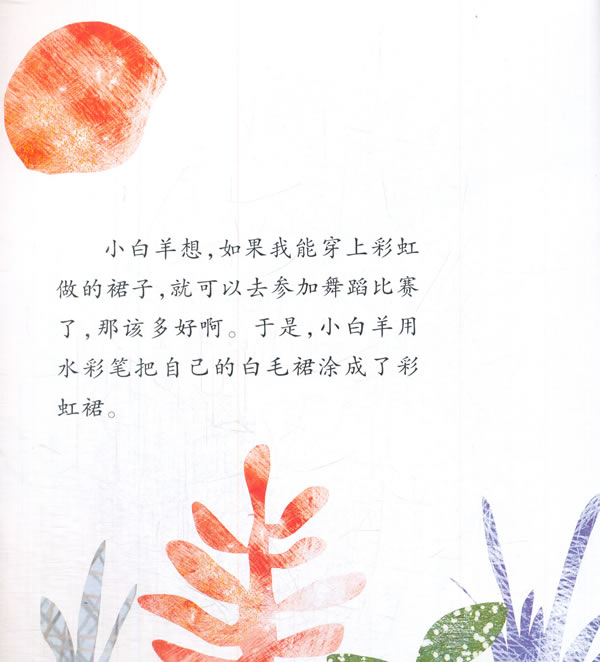 小白羊想,如果我能穿上彩虹
做的裙子,就可以去参加舞蹈比赛
了,那该多好啊。于是,小白羊用
水彩笔把自己的白毛裙涂成了彩
虹裙。